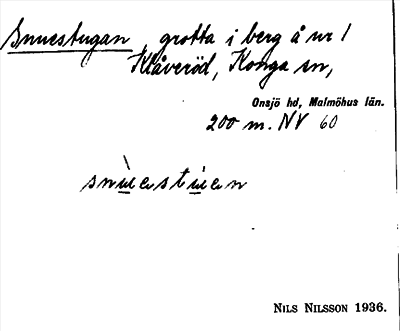 Snuestugan grotta i berg å nr 1
Klåveröd, Konga sn,
Onsjö hd, Malmöhus län.
200 m. NV 60
NILS NILSSON 1936.